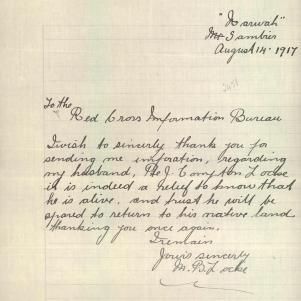 "Narwah"
Mt Gambier
August 14. 1917
To the
Red Cross Information Bureau
I wish to sincerly thank you for
sending me inforation, regarding
my husband, Pte J. Compton Locke
it is indeed a relief to know that
he is alive. and trust he will be
spared to return to his native land
thanking you once again.
I remain
Yours sincerly
M. B. Locke